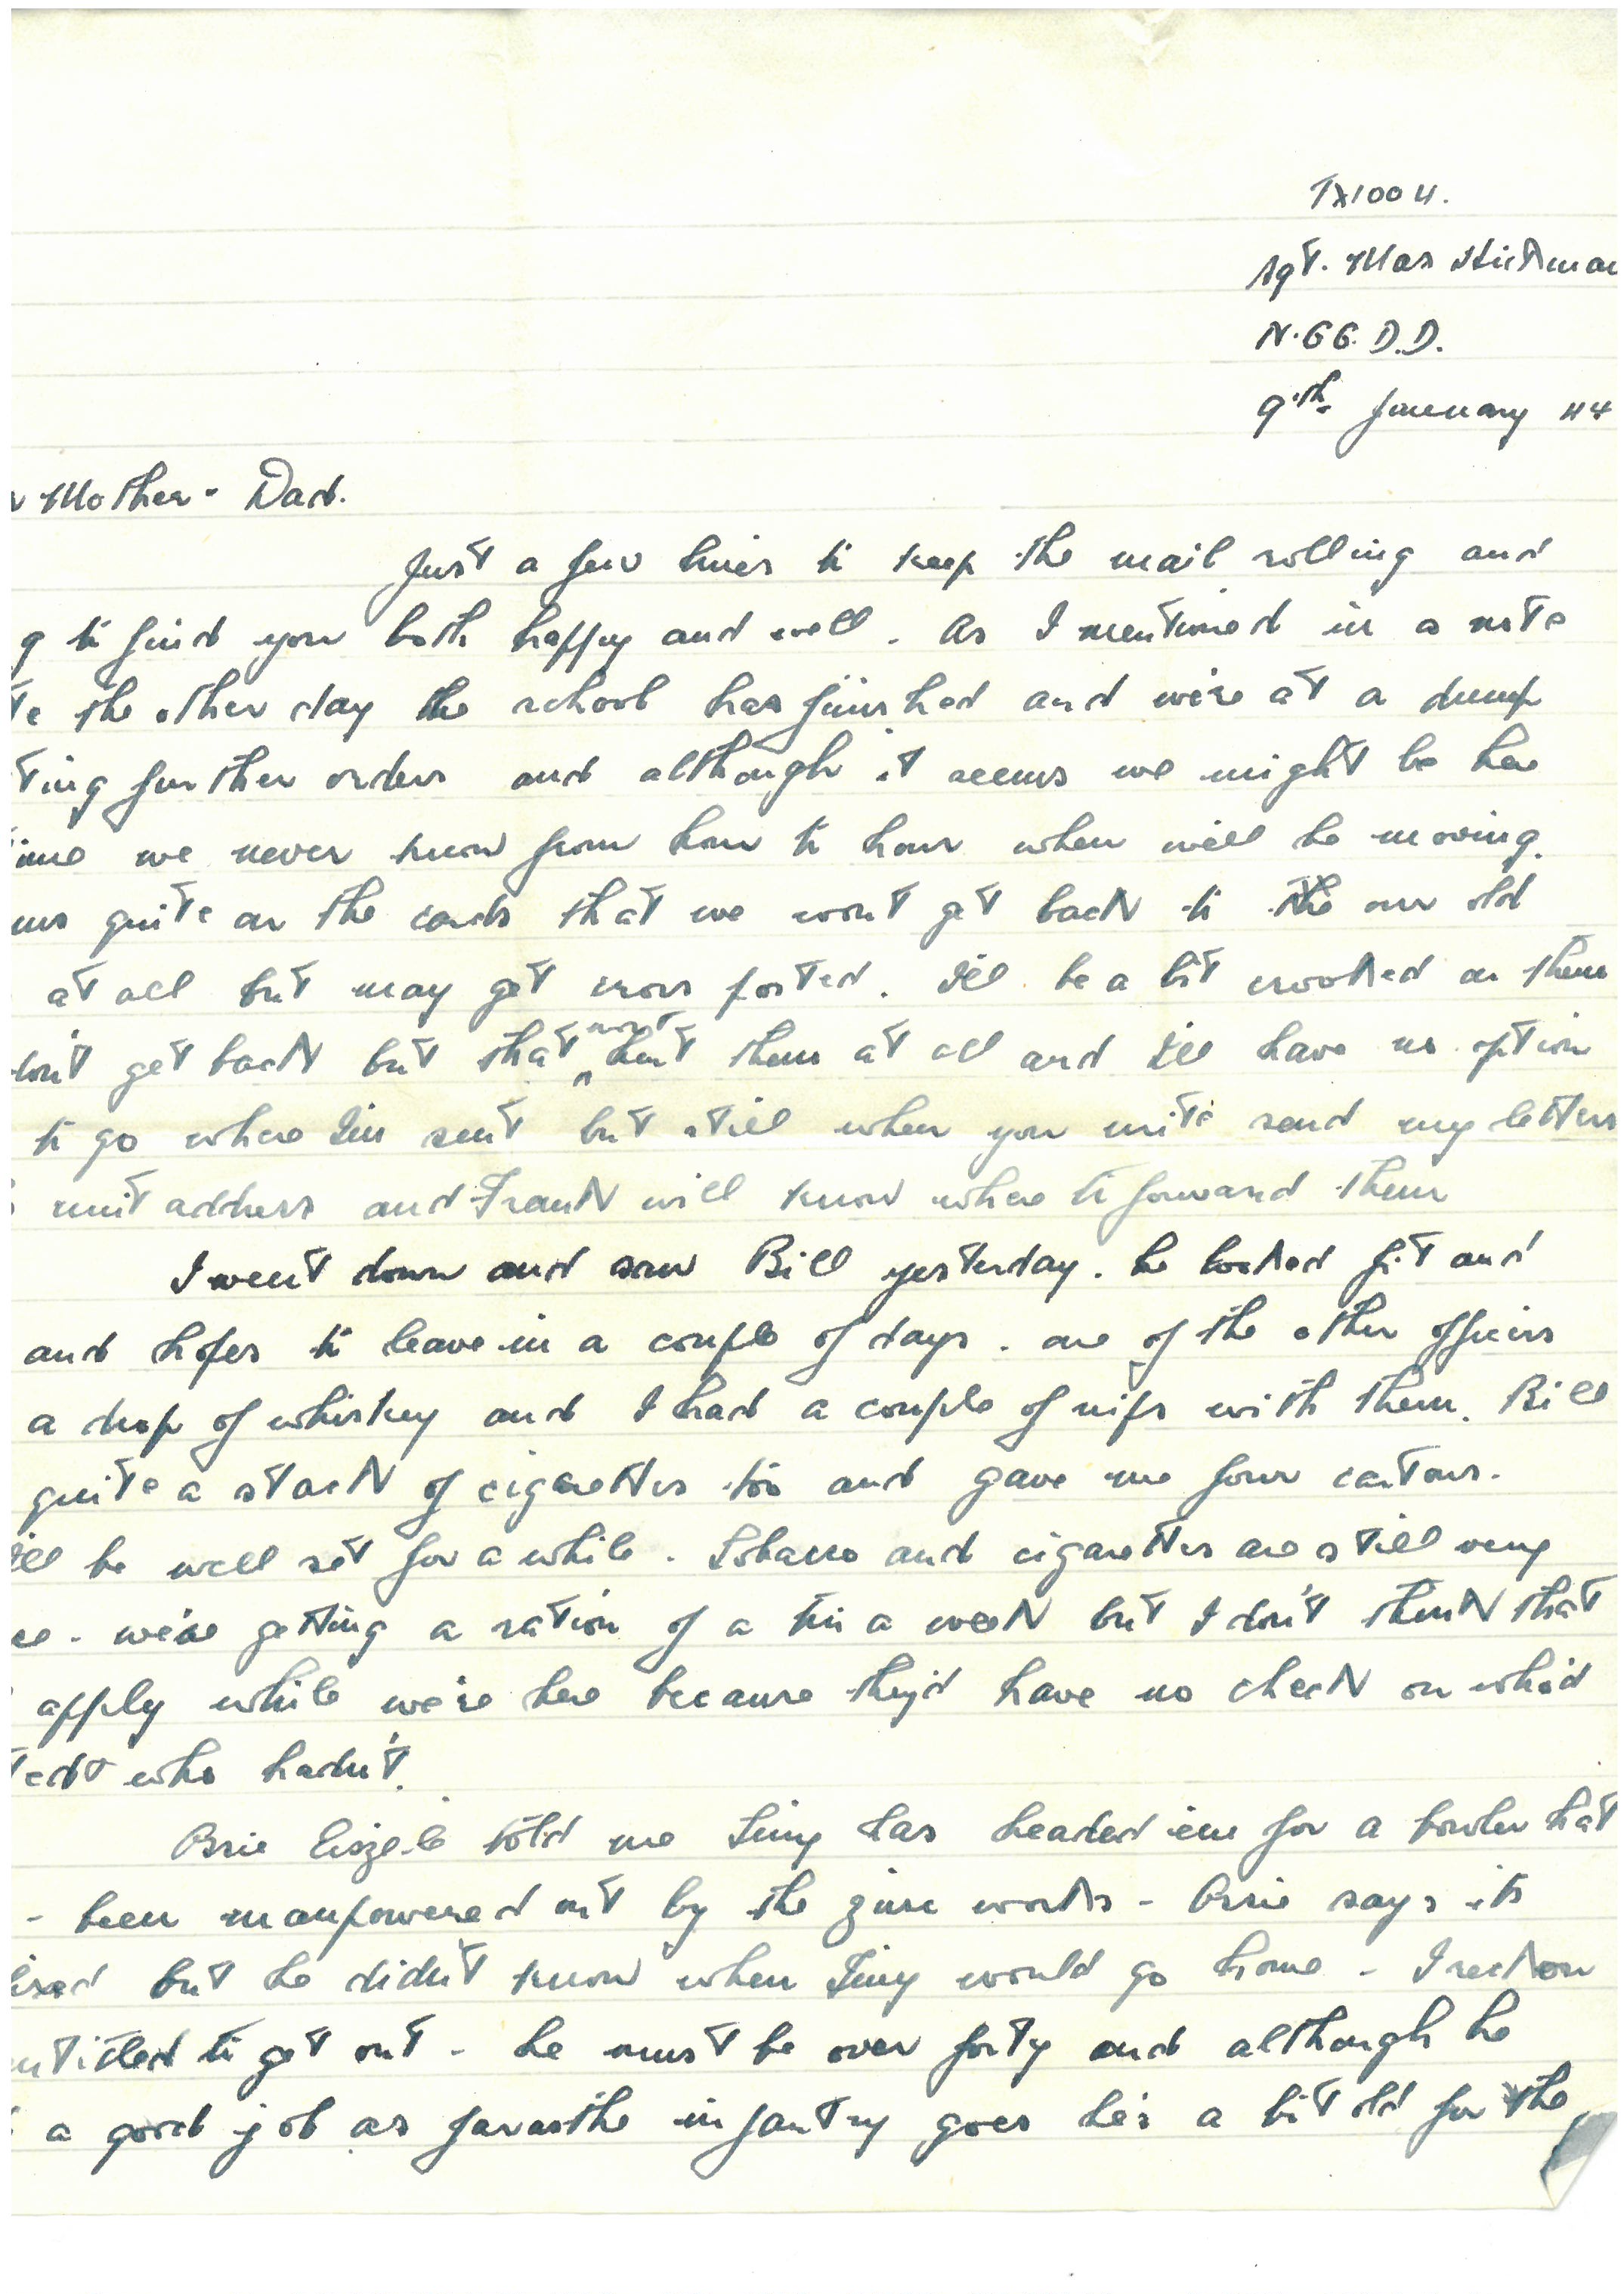 TX1004.
Sgt. Max Hickman
N.G.G. D.D.
9th January 44
Mother - Dad.
Just a few lines to keep the mail rolling and
g to find you both happy and well. As I mentioned in a note
te the other day the school has finished and we're at a dump
ting further orders and although it seems we might be here
ime we never know from hour to hour when we'll be moving.
ms quite on the cards that we won't get back to the our old
at all but may get cross posted. I'll be a bit crooked on them
don't get back but that won't hurt them at all and I'll have no option
to go where I'm sent but still when you write send my letters
unit address and Frank will know where to forward them
I went down and saw Bill yesterday. he looked fit and
and hopes to leave in a couple of days. one of the other officers
a drop of whiskey and I had a couple of nips with them. Bill
quite a stack of cigarettes too and gave me four cartons.
I'll be well set for a while. Tobacco and cigarettes are still very
ce. we're getting a ration of a tin a week but I don't think that
apply while we're here because they'd have no check on who'd
ted & who hadn't.
Ossie told me Tiny has headed em for a bowler hat
- been manpowered out by the zinc works - Ossie says its
ised but he didn't know when Tiny would go home - I reckon
ntitled to get out - he must be over forty and although he
a good job as far as the infantry goes he's a bit old for the